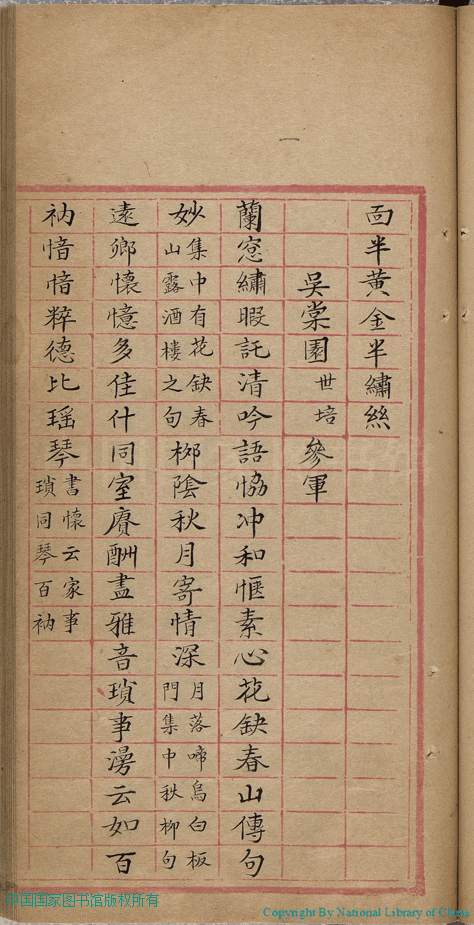 面半黃金半繡絲
吳棠園世培參軍
蘭窓繡暇託清吟語恊冲和愜素心花缺春山傳句
妙集中有花缺春山露酒樓之句栁陰秋月寄情深月落啼烏白板門集中秋柳句
遠鄉懷憶多佳什同室賡酬盡雅音瑣事漫云如百
衲愔愔粹德比瑶琴書懷云家事瑣同琴百衲
中国国家图书馆版权所有
Copyright By National Library of China